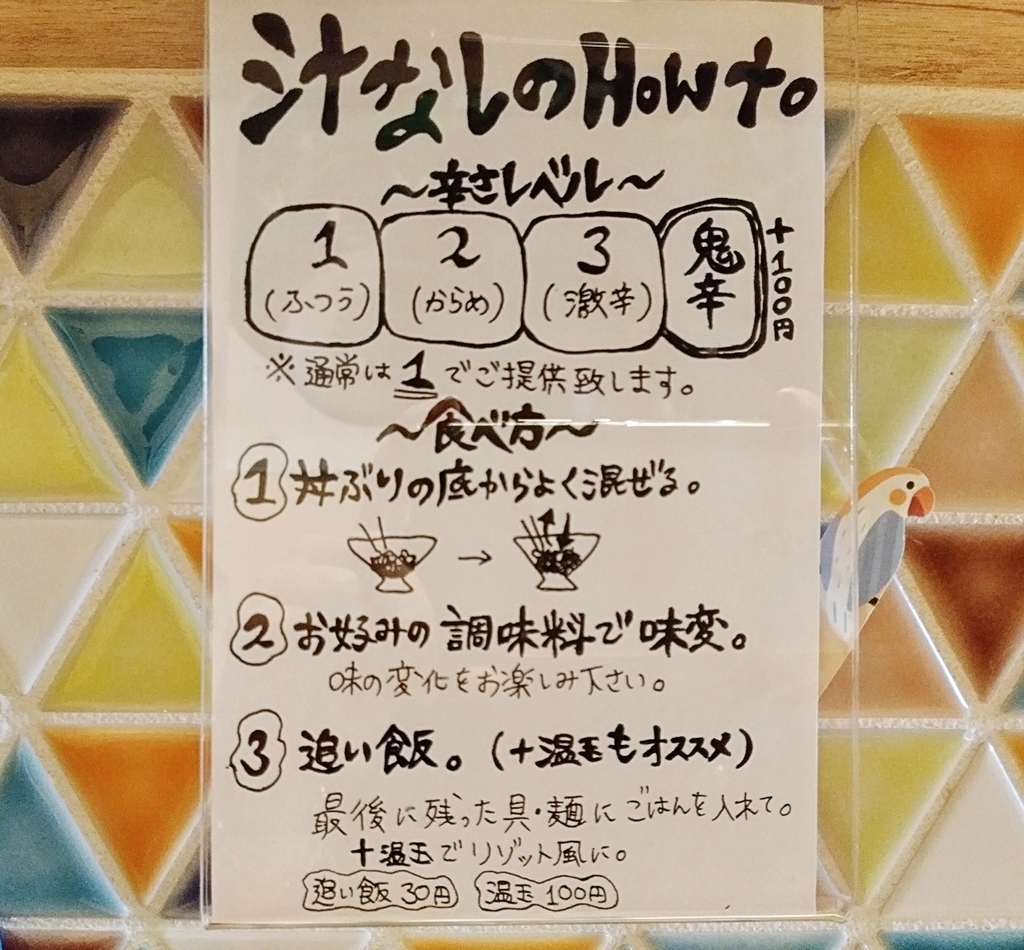 汁なしのHow to
〜辛さレベル〜
1 2 3 鬼辛 +100円
(ふつう) (からめ) (激辛)
※通常は1でご提供致します。
〜食べ方〜
① 丼ぶりの底からよく混ぜる。
→
② お好みの調味料で味変。
味の変化をお楽しみ下さい。
③ 追い飯。(+温玉もオススメ)
最後に残った具・麺にごはんを入れて。
+温玉でリゾット風に。
追い飯30円 温玉100円